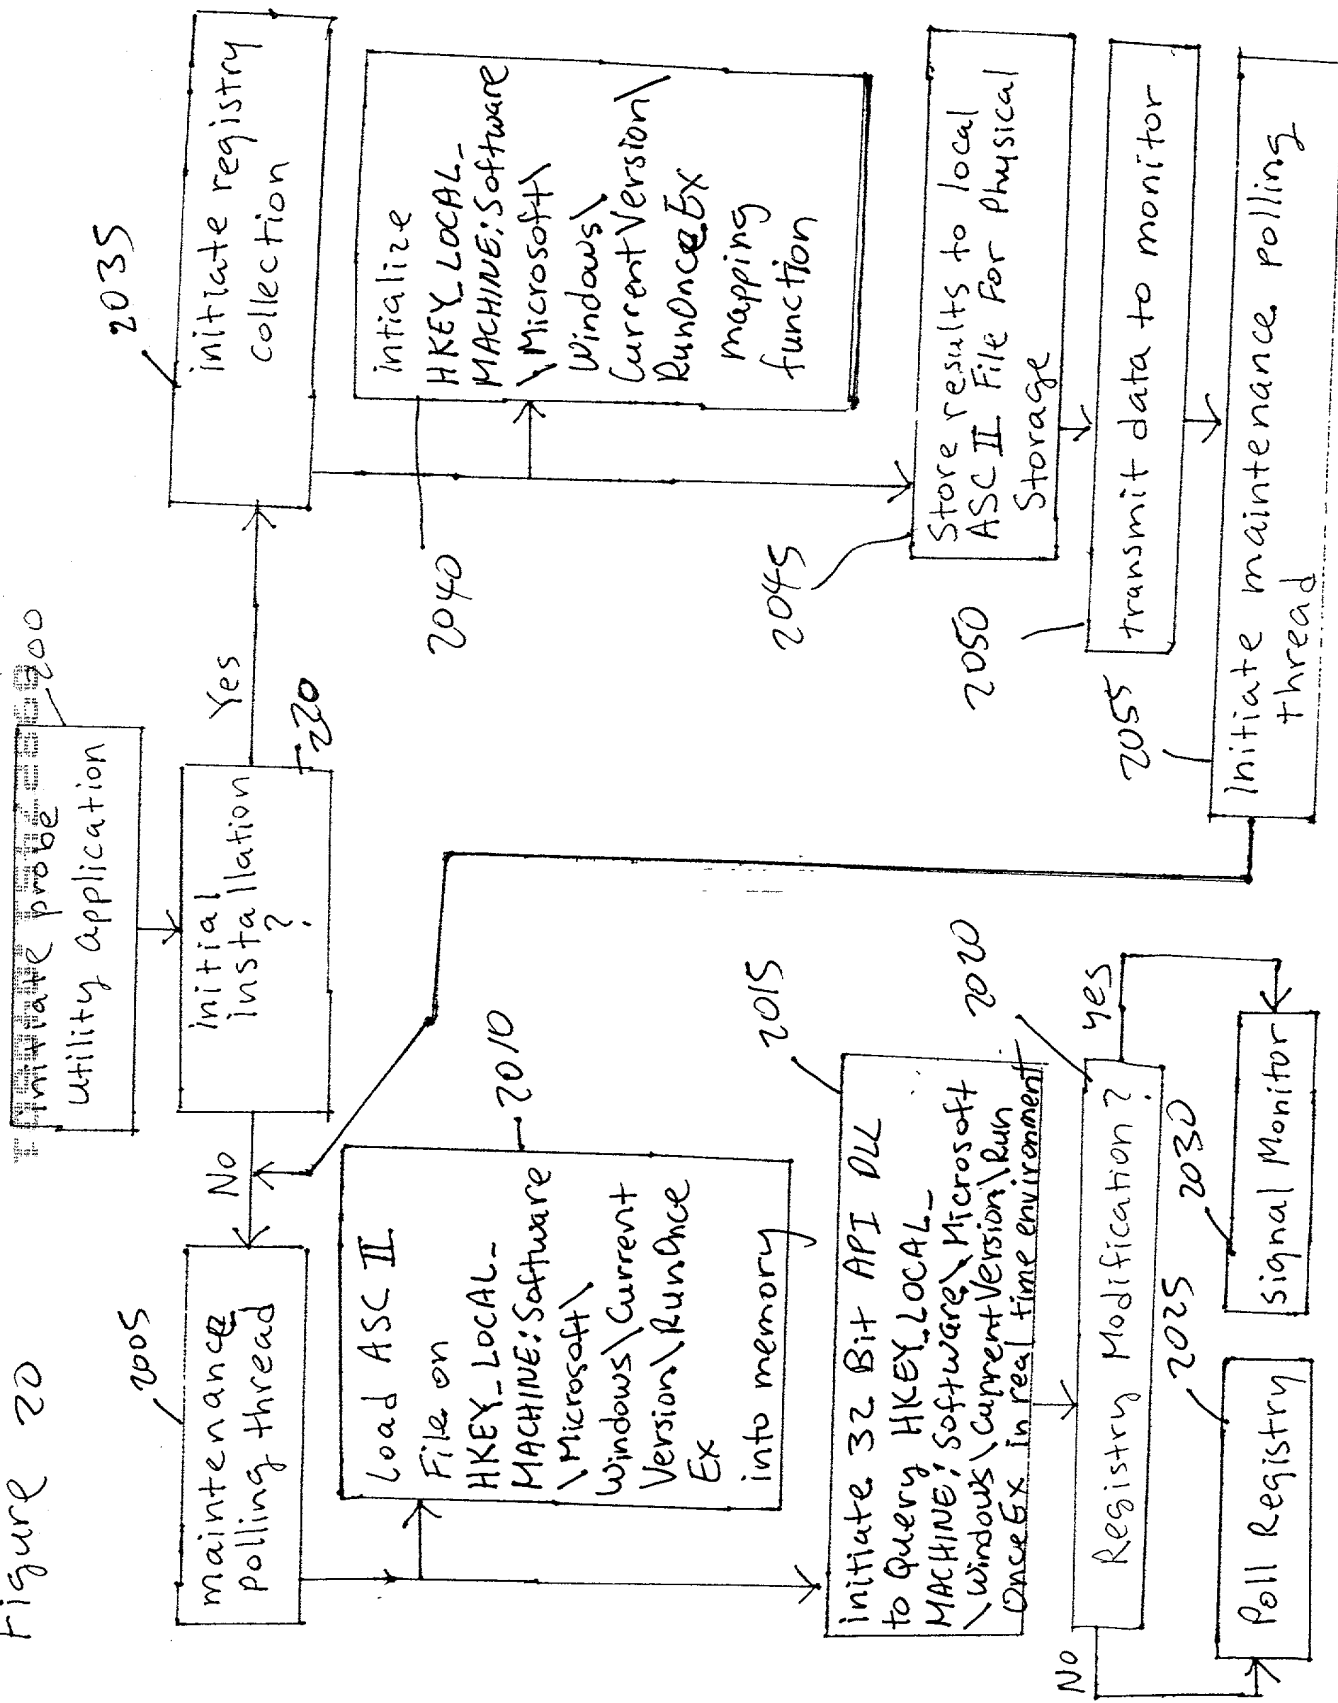 Figure 20
Initiate probe
Utility application
200
initial
installation
?
220
No
Yes
2005
maintenance
polling thread
2010
Load ASC II
File on
HKEY_LOCAL_
MACHINE:Software
\Microsoft\
Windows\Current
Version\RunOnce
Ex
into memory
2015
initiate 32 Bit API DLL
to Query HKEY_LOCAL_
MACHINE:Software\Microsoft
\Windows\CurrentVersion\Run
OnceEx in real time environment
2020
Registry Modification?
No
yes
2025
Poll Registry
2030
Signal Monitor
2035
initiate registry
collection
2040
intialize
HKEY_LOCAL_
MACHINE:Software
\Microsoft\
Windows\
CurrentVersion\
RunOnce_Ex
mapping
function
2045
Store results to local
ASC II File For Physical
Storage
2050
transmit data to monitor
2055
Initiate maintenance polling
thread